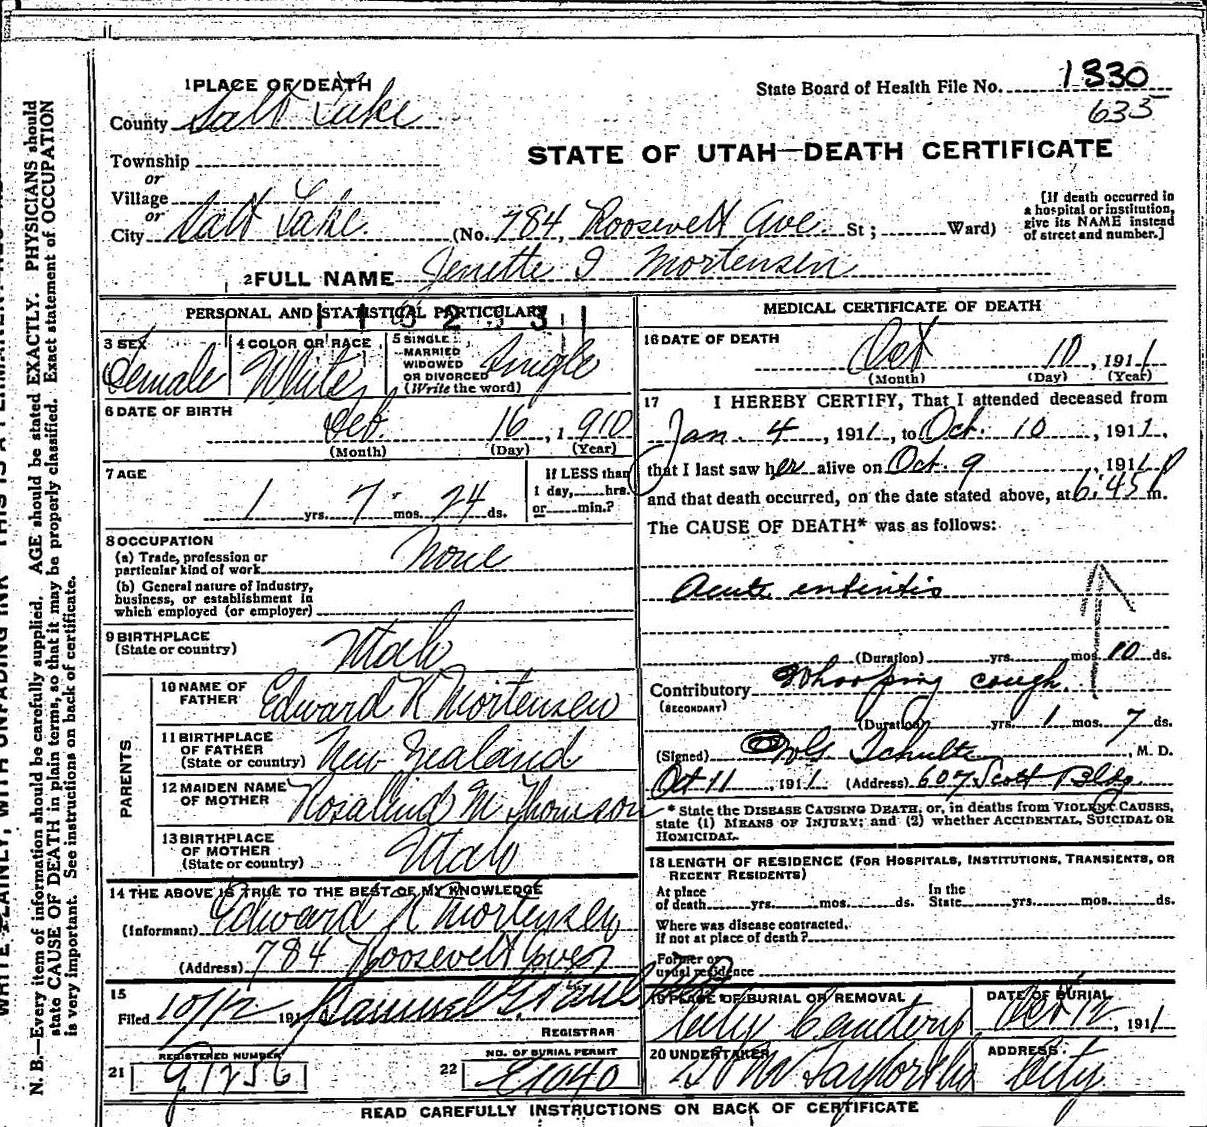 1 PLACE OF DEATH
State Board of Health File No. 1830
635
County Salt Lake
STATE OF UTAH—DEATH CERTIFICATE
Township
or
Village
or
City Salt Lake (No. 784, Roosevelt Ave. St; Ward)
[If death occurred in a hospital or institution, give its NAME instead of street and number.]
2 FULL NAME Jenette I Mortensen
PERSONAL AND STATISTICAL PARTICULARS
3 SEX Female
4 COLOR OR RACE White
5 SINGLE MARRIED WIDOWED OR DIVORCED (Write the word) Single
6 DATE OF BIRTH
Feb. 16, 1910
(Month) (Day) (Year)
7 AGE
1 yrs. 7 mos. 24 ds.
If LESS than 1 day, hrs. or min.?
8 OCCUPATION
(a) Trade, profession or particular kind of work None
(b) General nature of industry, business, or establishment in which employed (or employer)
9 BIRTHPLACE
(State or country) Utah
PARENTS
10 NAME OF FATHER Edward K Mortensen
11 BIRTHPLACE OF FATHER (State or country) New Zealand
12 MAIDEN NAME OF MOTHER Rosalind M Thomson
13 BIRTHPLACE OF MOTHER (State or country) Utah
14 THE ABOVE IS TRUE TO THE BEST OF MY KNOWLEDGE
(Informant) Edward K Mortensen
(Address) 784 Roosevelt Ave
15
Filed 10/12 191 Samuel G. Paul
REGISTRAR
21 REGISTERED NUMBER G1256
22 NO. OF BURIAL PERMIT E1040
MEDICAL CERTIFICATE OF DEATH
16 DATE OF DEATH
Oct 10, 1911
(Month) (Day) (Year)
17 I HEREBY CERTIFY, That I attended deceased from
Jan. 4, 1911, to Oct. 10, 1911,
that I last saw her alive on Oct. 9, 1911
and that death occurred, on the date stated above, at 6:45 P m.
The CAUSE OF DEATH* was as follows:
Acute enteritis
(Duration) yrs. mos. 10 ds.
Contributory Whooping cough.
(SECONDARY)
(Duration) yrs. 1 mos. 7 ds.
(Signed) W G Schulte, M. D.
Oct 11, 1911 (Address) 607 Scott Bldg
* State the DISEASE CAUSING DEATH, or, in deaths from VIOLENT CAUSES,
state (1) MEANS OF INJURY; and (2) whether ACCIDENTAL, SUICIDAL OR
HOMICIDAL.
18 LENGTH OF RESIDENCE (FOR HOSPITALS, INSTITUTIONS, TRANSIENTS, OR
RECENT RESIDENTS)
At place of death yrs. mos. ds. In the State yrs. mos. ds.
Where was disease contracted,
if not at place of death?
Former or
usual residence
19 PLACE OF BURIAL OR REMOVAL City Cemetery
DATE OF BURIAL Oct 12, 1911
20 UNDERTAKER
ADDRESS City
READ CAREFULLY INSTRUCTIONS ON BACK OF CERTIFICATE
N. B.—Every item of information should be carefully supplied. AGE should be stated EXACTLY. PHYSICIANS should
state CAUSE OF DEATH in plain terms, so that it may be properly classified. Exact statement of OCCUPATION
is very important. See instructions on back of certificate.